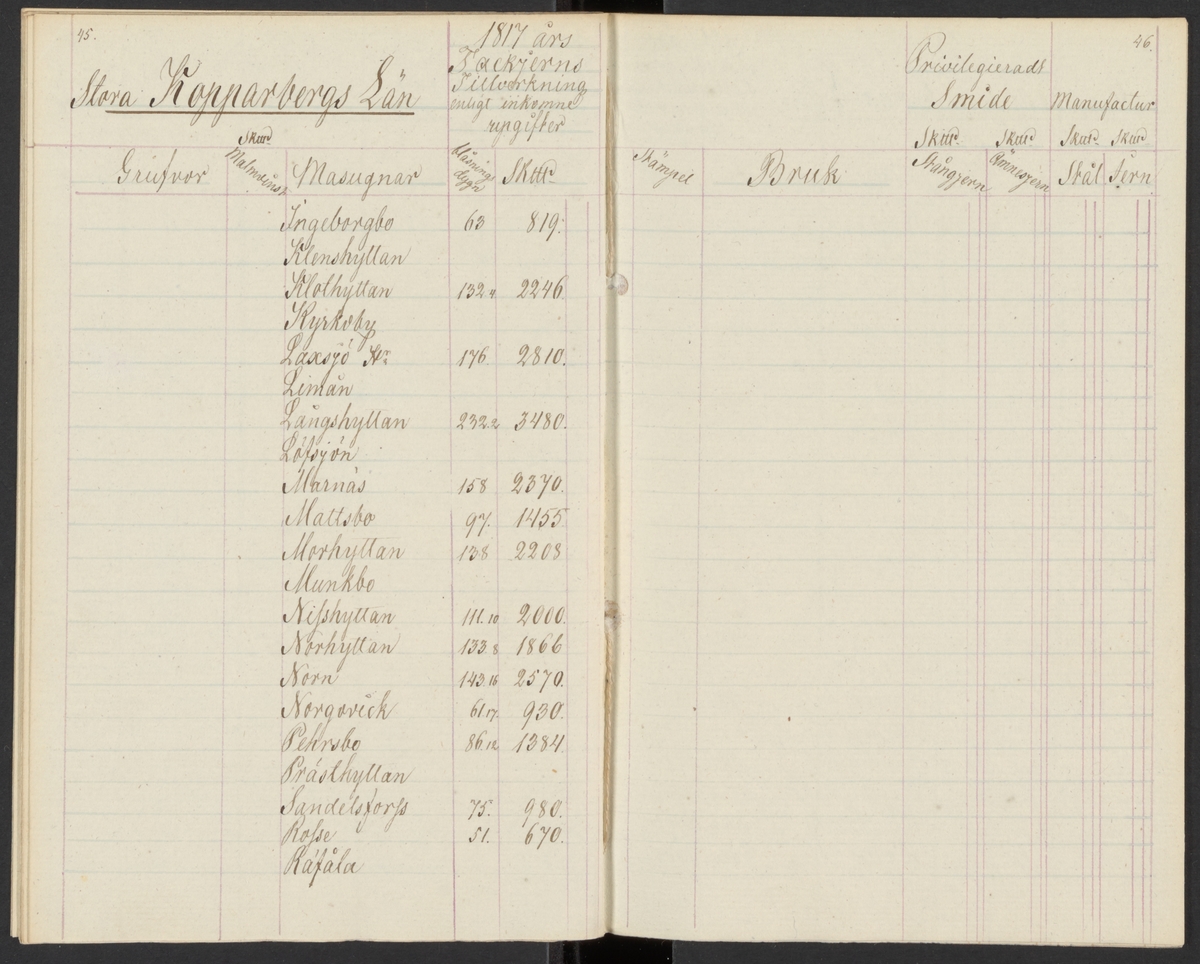 45.
Stora Kopparbergs Län
1817 års
Tackjerns
Tillverkning
enligt inkomne
upgifter
Skttd
Grufvor Malmvinst Masugnar blåsnings dygn Skttd
Ingeborgbo 63 819.
Klenshyttan
Klothyttan 132 4 2246
Kyrkoby
Laxsjö 176 2810.
Limån
Långshyttan 232.2 3480.
Löfsjön
Marnäs 158 2370.
Mattsbo 97. 1455
Morhyttan 138 2208
Munkbo
Nisshyttan 111.10 2000.
Norhyttan 133 8 1866
Norn 143.16 2570.
Norgovick 61.17. 930.
Pehrsbo 86.12 1384
Prästhyttan
Sandelsforss 75. 980.
Rosse 51. 670.
Räfåla
46.
Privilegieradt
Smide Manufactur
Skttd Skttd Skttd Skttd
Stämpel Bruk Stångjern Ämnesjern Stål Jern